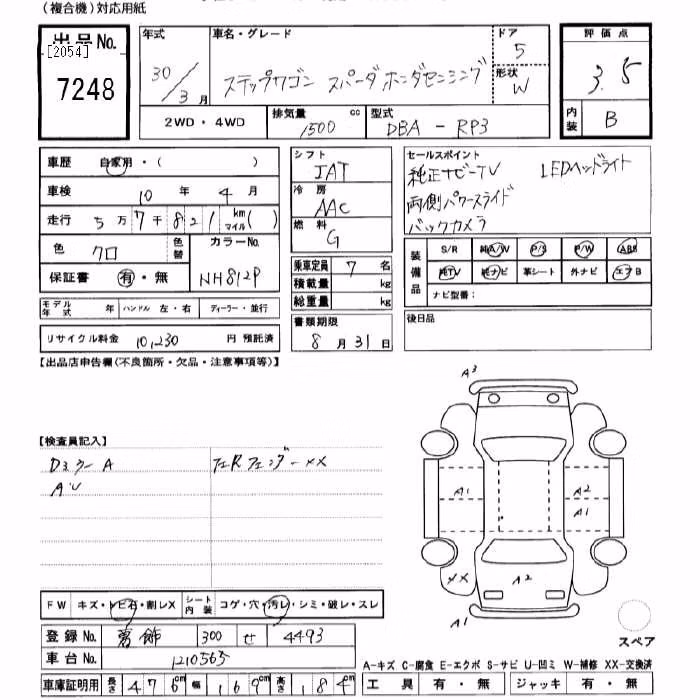 (複合機)対応用紙
出品No. [2054] 7248
年式 30/3月
車名・グレード ステップワゴン スパーダ ホンダセンシング
ドア 5
形状 W
評価点 3.5
内装 B
2WD・4WD
排気量 1500 cc
型式 DBA-RP3
車歴 自家用・( )
車検 10年 4月
走行 5万7千821 km マイル( )
色 クロ
色替
カラーNo. NH812P
保証書 有・無
モデル年式 年 ハンドル 左・右 ディーラー・並行
リサイクル料金 10,230 円 預託済
シフト IAT
冷房 AAC
燃料 G
乗車定員 7 名
積載量 kg
総重量 kg
書類期限 8月31日
セールスポイント
純正ナビ-TV LEDヘッドライト
両側パワースライド
バックカメラ
装備品 S/R 純A/W P/S P/W ABS
純TV 純ナビ 革シート 外ナビ エアB
ナビ型番:
後日品
【出品店申告欄(不良箇所・欠品・注意事項等)】
【検査員記入】
Dミラー A
AU
左Rフェンダー XX
A3
A1 A2
A1
XX A2
A1
スペア
FW キズ・トビ石・割レX
シート内装 コゲ・穴・汚レ・シミ・破レ・スレ
登録No. 葛飾 300 せ 4493
車台No. 1210565
車庫証明用 長さ 476cm 幅 169cm 高さ 184cm
A-キズ C-腐食 E-エクボ S-サビ U-凹ミ W-補修 XX-交換済
工具 有・無 ジャッキ 有・無